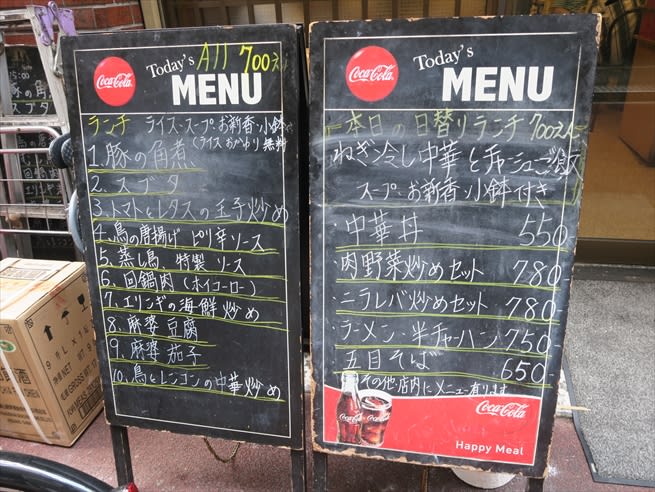 Coca-Cola
Today's All 700えん
MENU
ランチ ライス・スープ・お新香・小鉢
(ライスおかわり無料)
1. 豚の角煮
2. スブタ
3. トマトとレタスの玉子炒め
4. 鳥の唐揚げ ピリ辛ソース
5. 蒸し鳥 特製 ソース
6. 回鍋肉 (ホイコーロー)
7. エリンギの海鮮炒め
8. 麻婆豆腐
9. 麻婆茄子
10. 鳥とレンコンの中華炒め
Coca-Cola
Today's
MENU
本日の日替りランチ700えん
ねぎ冷し中華とチャーシューご飯
スープ・お新香・小鉢付き
・中華丼 550
・肉野菜炒めセット 780
・ニラレバ炒めセット 780
・ラーメン・半チャーハン 750
・五目そば 650
その他・店内にメニュー有ります
Coca-Cola
Happy Meal